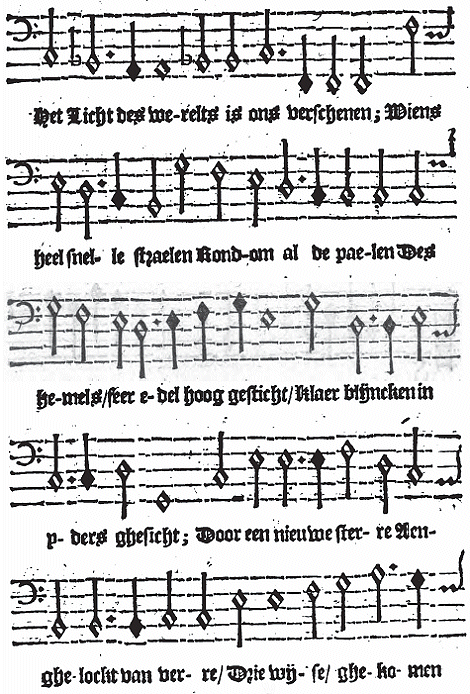 Het Licht des we-relts is ons verschenen; Wiens
heel snel- le straelen Rond-om al de pae-len Des
he-mels/ seer e-del hoog gesticht/ Klaer blijncken in
y- ders ghesicht; Door een nieuwe ster- re Aen-
ghe-lockt van ver- re/ Drie wij- se/ ghe- ko- men